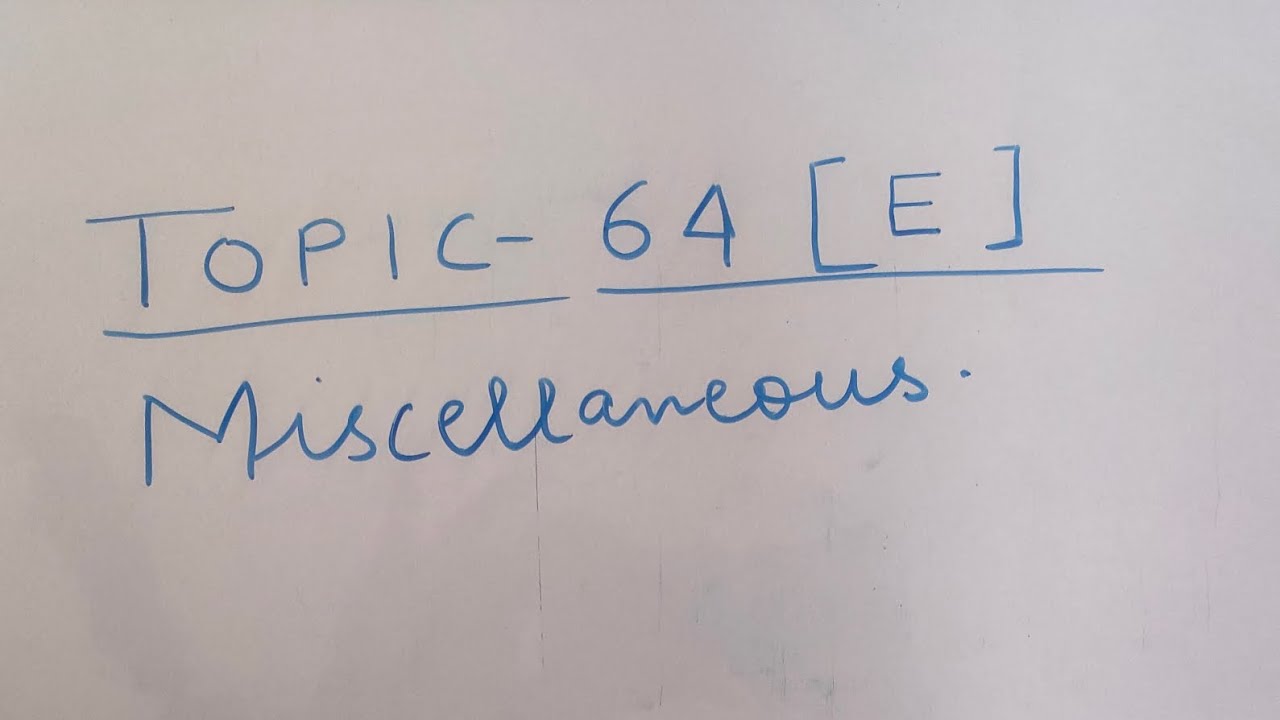 TOPIC- 64 [E]
Miscellaneous.